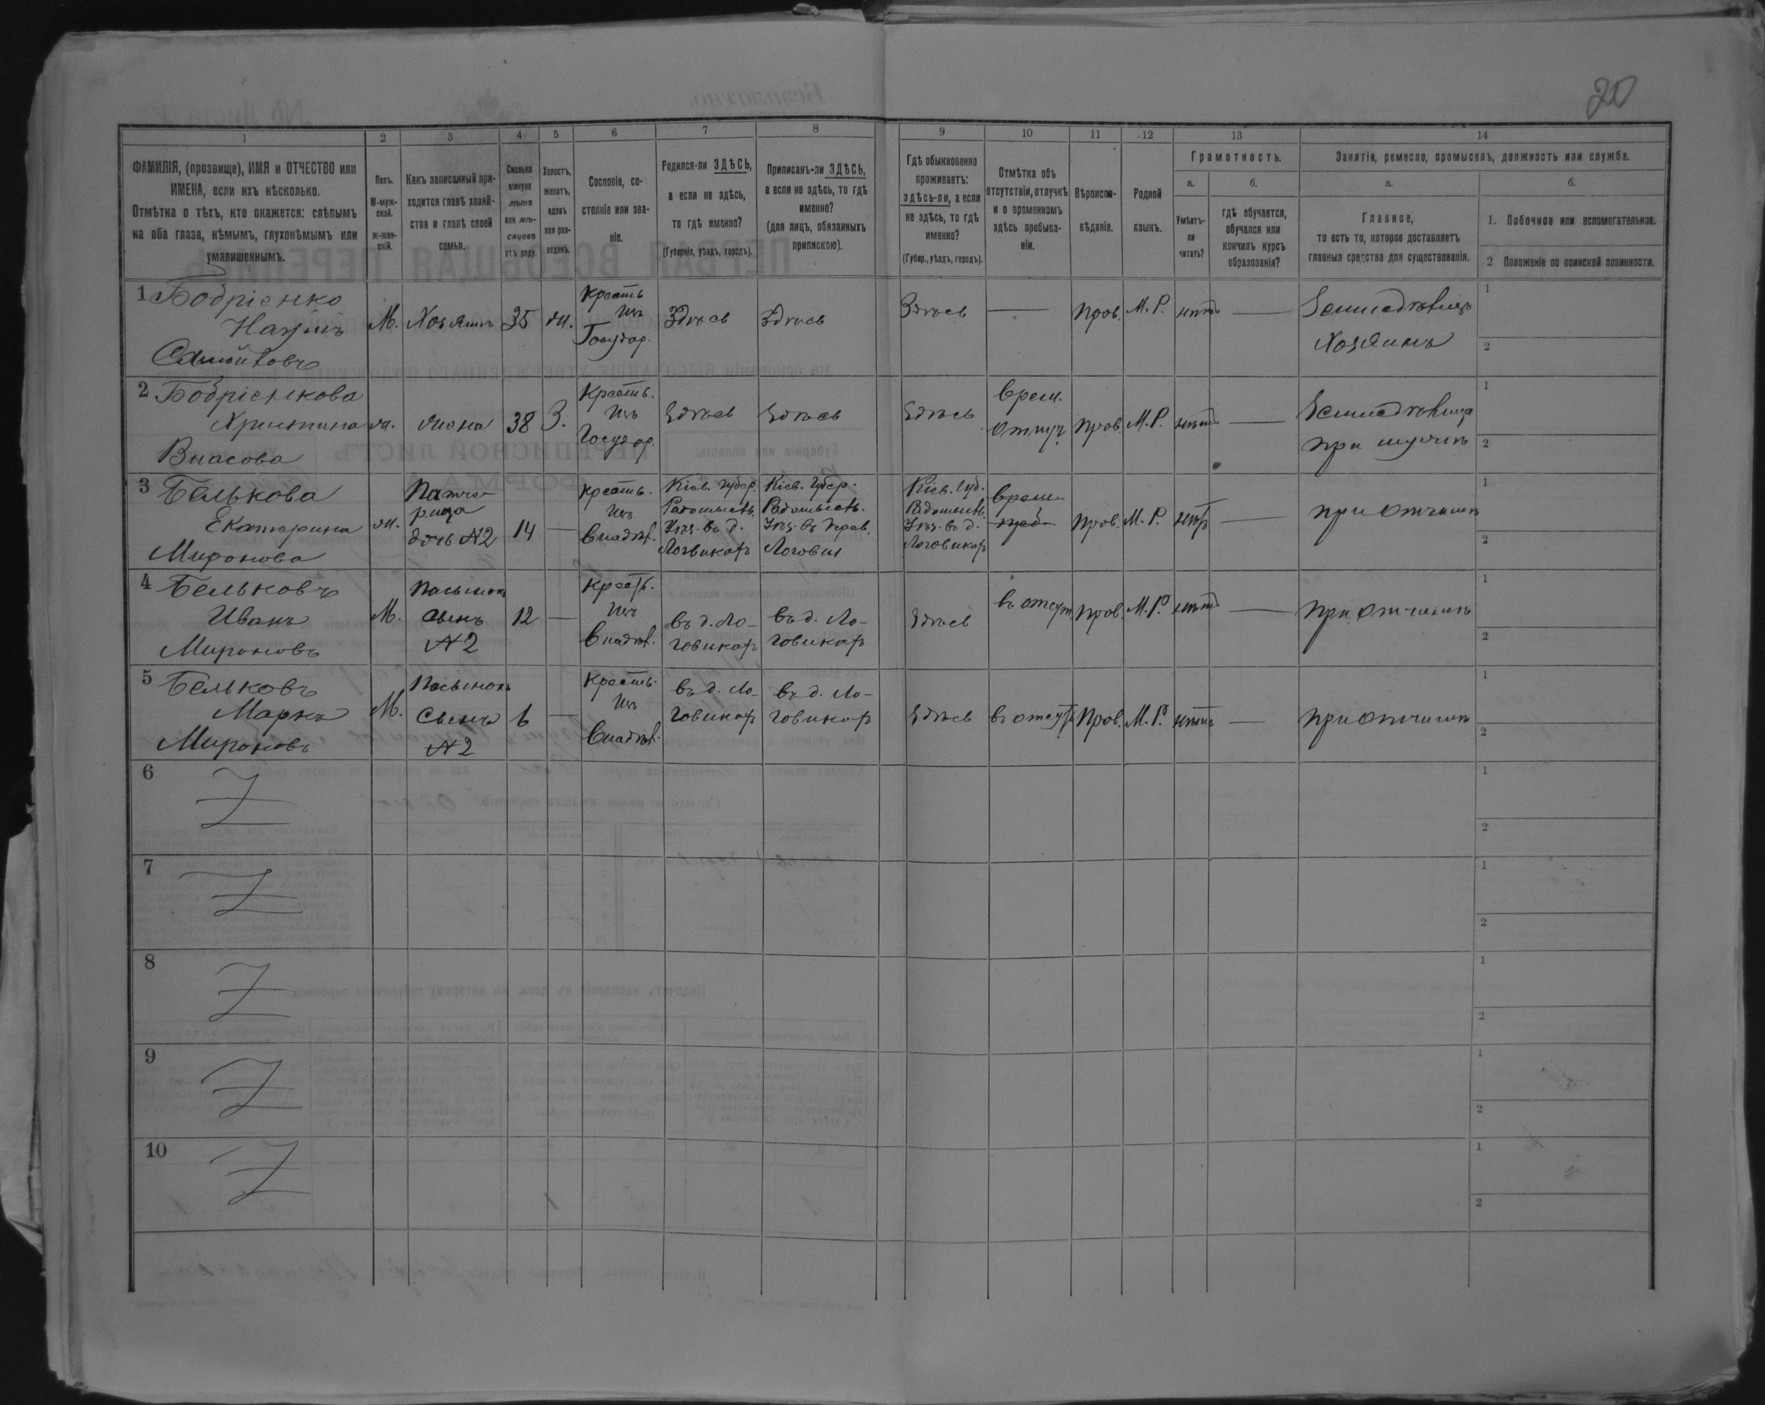 20
1 2 3 4 5 6 7 8 9 10 11 12 13 14
ФАМИЛІЯ, (прозвище), ИМЯ и ОТЧЕСТВО или
ИМЕНА, если ихъ нѣсколько.
Отмѣтка о тѣхъ, кто окажется: слѣпымъ
на оба глаза, нѣмымъ, глухонѣмымъ или
умалишеннымъ.
Полъ.
М-муж-
ской.
Ж-жен-
скій.
Какъ записанный при-
ходится главѣ хозяй-
ства и главѣ своей
семьи.
Сколько
минуло
лѣтъ
или мѣ-
сяцевъ
отъ роду.
Холостъ,
женатъ,
вдовъ
или раз-
веденъ.
Сословіе, со-
стояніе или зва-
ніе.
Родился-ли ЗДѢСЬ,
а если не здѣсь,
то гдѣ именно?
(Губернія, уѣздъ, городъ).
Приписанъ-ли ЗДѢСЬ,
а если не здѣсь, то гдѣ
именно?
(для лицъ, обязанныхъ
припискою).
Гдѣ обыкновенно
проживаетъ:
здѣсь-ли, а если
не здѣсь, то гдѣ
именно?
(Губер., уѣздъ, городъ).
Отмѣтка объ
отсутствіи, отлучкѣ
и о временномъ
здѣсь пребыва-
ніи.
Вѣроиспо-
вѣданіе.
Родной
языкъ.
Грамотность.
а.
Умѣетъ-
ли
читать?
б.
гдѣ обучается,
обучался или
кончилъ курсъ
образованія?
Занятіе, ремесло, промыселъ, должность или служба.
а.
Главное,
то есть то, которое доставляетъ
главныя средства для существованія.
б.
1. Побочное или вспомогательное.
2 Положеніе по воинской повинности.
1 Бобрієнко
Наумъ
Самойловъ
М.
Хозяинъ
35
ж.
Крестъ
изъ
Государ.
Здѣсь
Здѣсь
Здѣсь
—
Прав.
М. Р.
нѣтъ
—
Земледѣлецъ
Хозяинъ
1
2
2 Бобрієнкова
Христина
Власова
ж.
жена
38
З.
Крестъ.
изъ
Государ
Здѣсь
Здѣсь
Здѣсь
врем.
отлуч
Прав.
М. Р.
нѣтъ
—
Земледѣлица
при мужѣ
1
2
3 Белькова
Екатерина
Миронова
ж.
Падче-
рица
дочь №2
14
—
Крестъ.
изъ
Владѣл.
Кіев. Губер.
Радомысл.
Уѣз. въ д.
Логвикахъ
Кіев. Губер.
Радомысл.
Уѣз. въ
Кіев. Губ.
Радомысл.
Уѣз. въ д.
Логовикахъ
врем.
Прав.
М. Р.
нѣтъ
—
при отчимѣ
1
2
4 Бельковъ
Иванъ
Мироновъ
М.
Пасынок
сынъ
№2
12
—
Крестъ.
изъ
Владѣл.
въ д. Ло-
говикахъ
въ д. Ло-
говикахъ
Здѣсь
въ отсут
Прав.
М. Р.
нѣтъ
—
при отчимѣ
1
2
5 Бельковъ
Марко
Мироновъ
М.
Пасынокъ
Сынъ
№2
6
—
Крестъ.
изъ
Владѣл.
въ д. Ло-
говикахъ
въ д. Ло-
говикахъ
Здѣсь
въ отсут
Прав.
М. Р.
нѣтъ
—
при отчимѣ
1
2
6
1
2
7
1
2
8
1
2
9
1
2
10
1
2